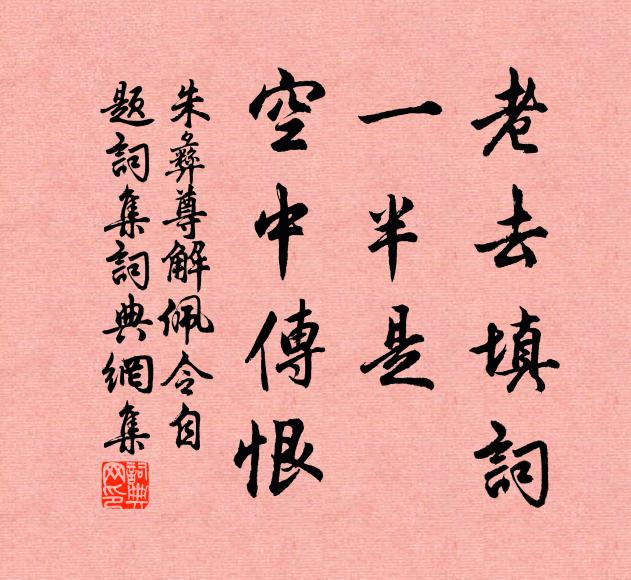 老去填詞
一半是
空中傳恨
朱彝尊解佩令自
题詞集詞典網集
詞典网印